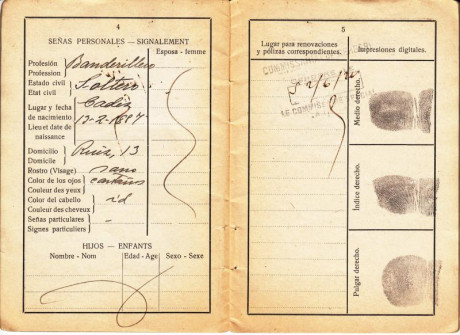 4
SEÑAS PERSONALES — SIGNALEMENT
Esposa - femme
Profesión
Profession
Banderillero
Estado civil
Etat civil
Soltero
Lugar y fecha
de nacimiento
Lieu et date de
naissance
Cadiz
Domicilio
Domicile
Ruiz, 13
Rostro (Visage)
sano
Color de los ojos
Couleur des yeux
castaños
Color del cabello
Couleur des cheveux
id
Señas particulares
Signes particuliers
-
HIJOS — ENFANTS
Nombre - Nom
Edad - Age
Sexo - Sexe
5
Lugar para renovaciones
y pólizas correspondientes.
Impresiones digitales.
LE COMMISSAIRE
Medio derecho.
Indice derecho.
Pulgar derecho.